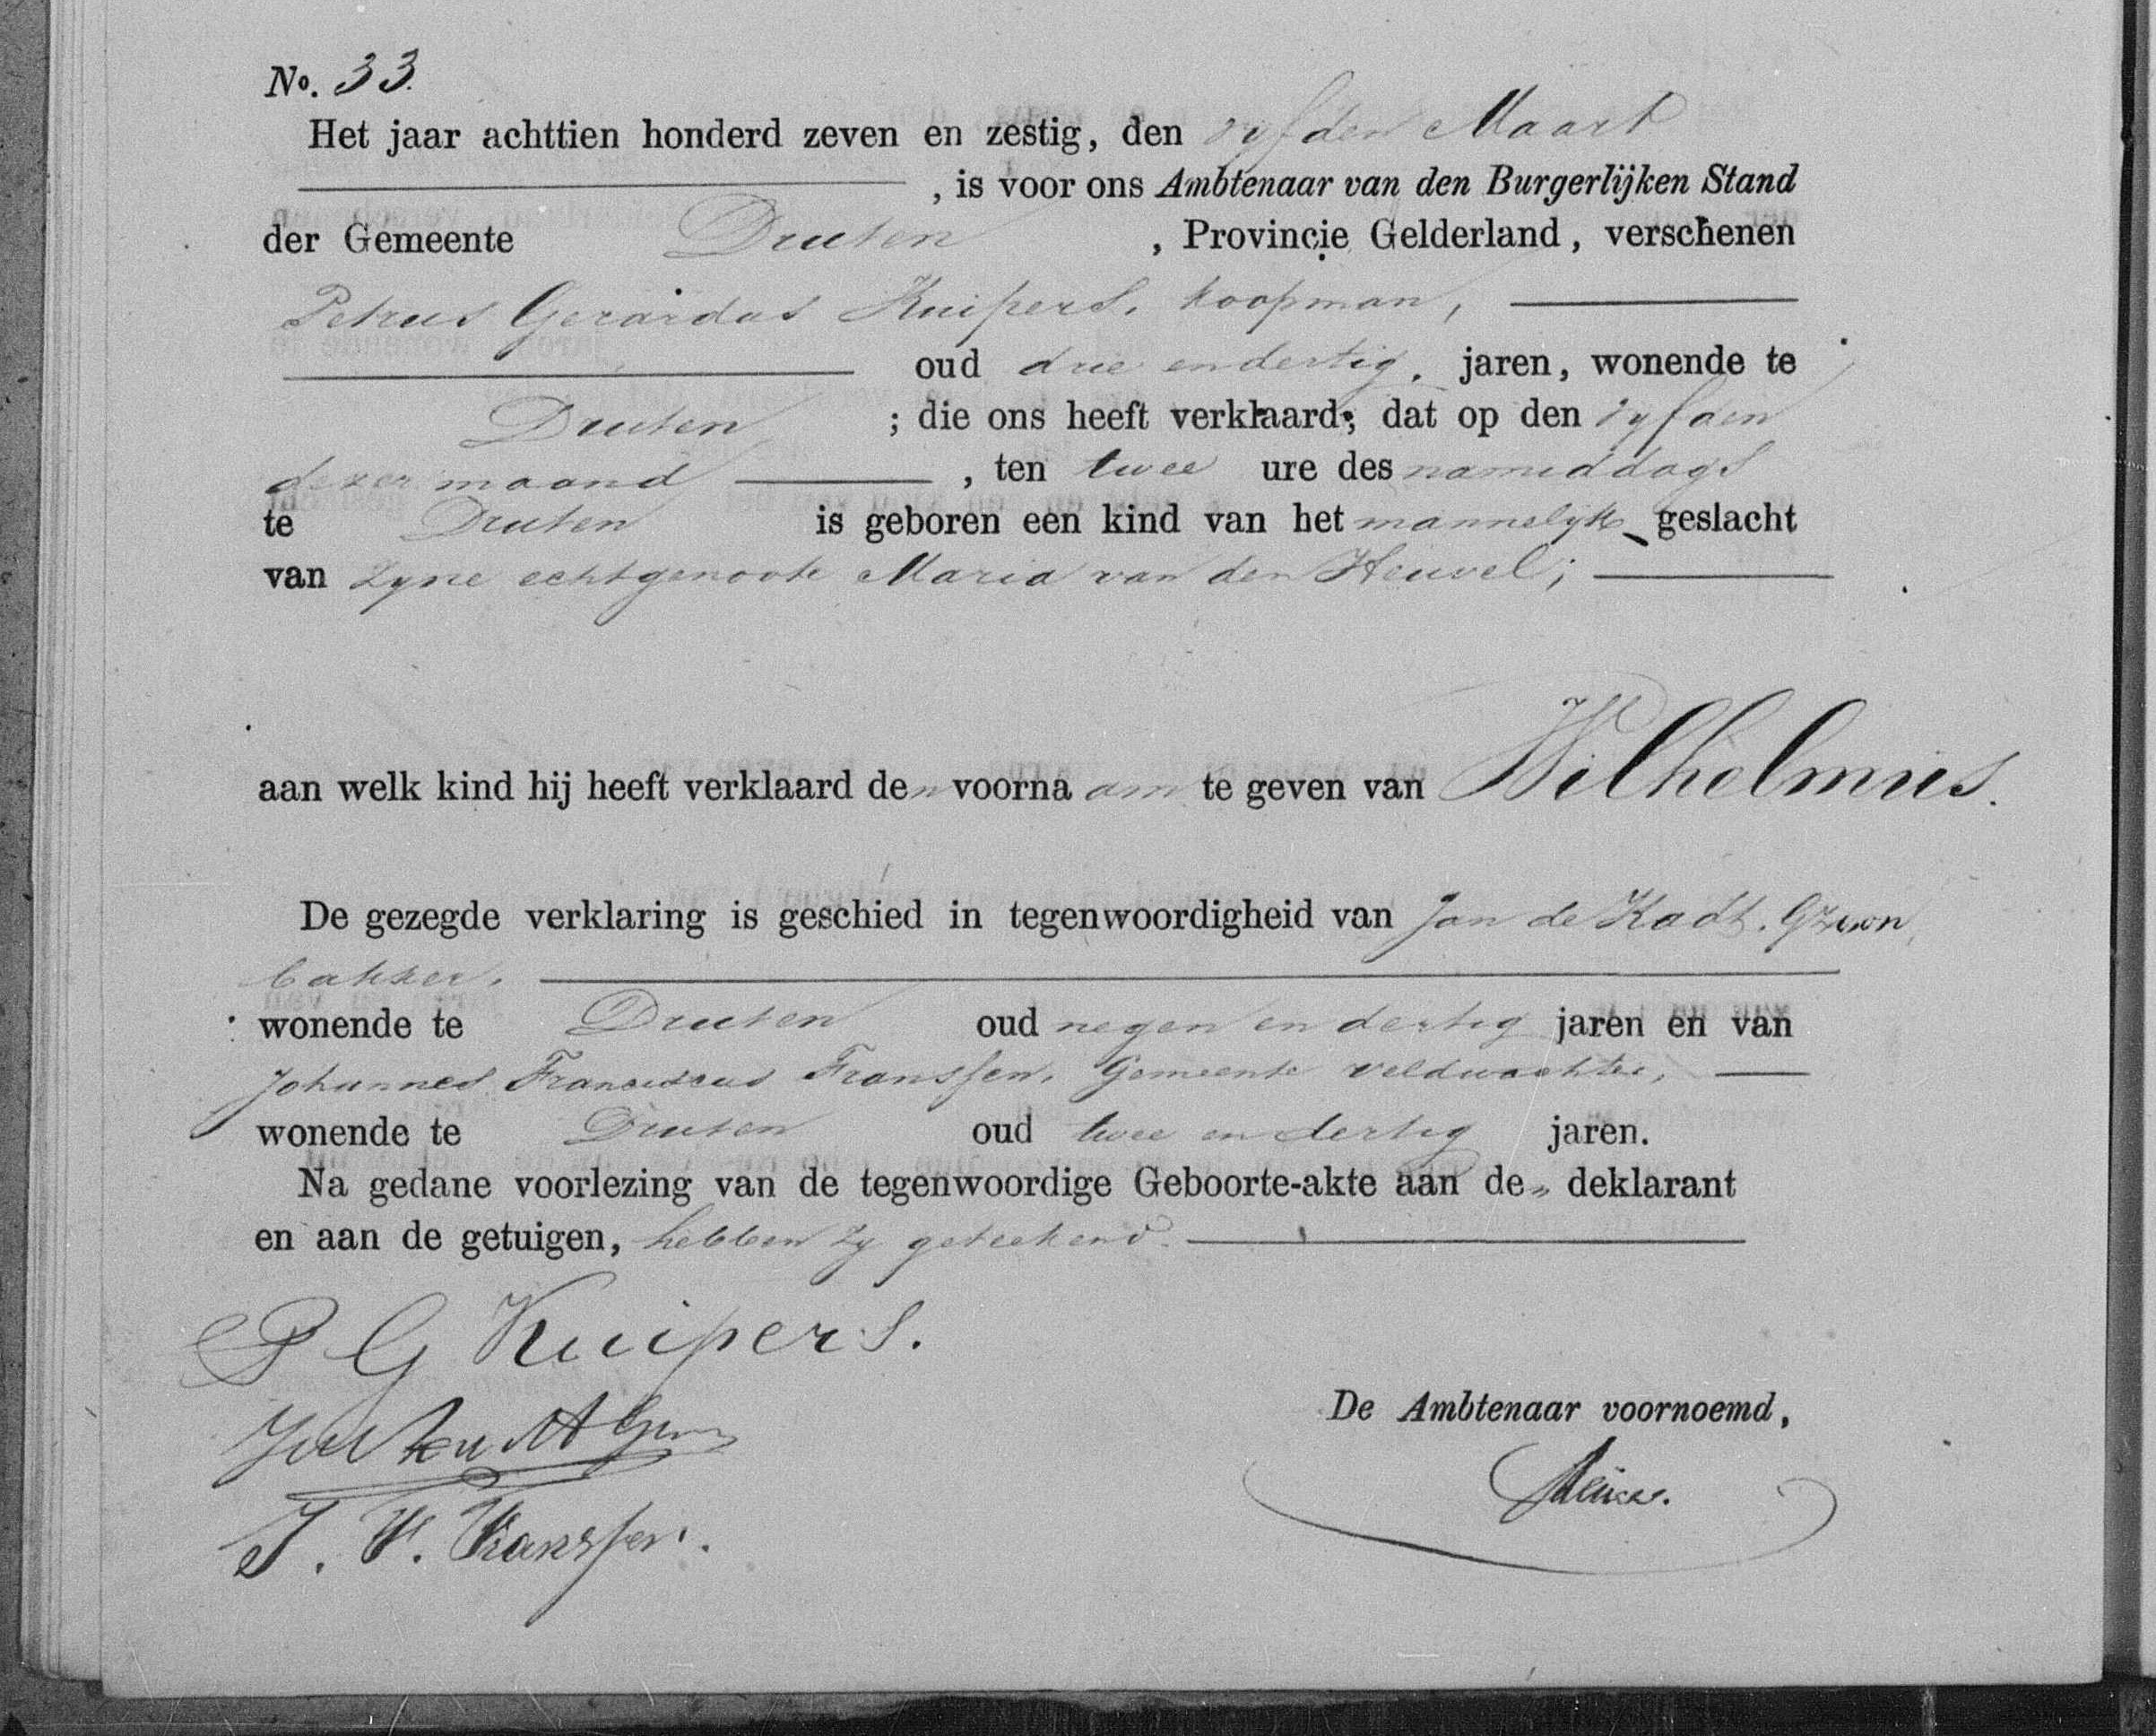 No. 33.
Het jaar achttien honderd zeven en zestig, den vyfden Maart
, is voor ons Ambtenaar van den Burgerlijken Stand
der Gemeente Druten , Provincie Gelderland, verschenen
Petrus Gerardus Kuipers, koopman,
oud drie en dertig, jaren, wonende te
Druten ; die ons heeft verklaard, dat op den vyfden
dezer maand , ten twee ure des namiddags
te Druten is geboren een kind van het mannelyk geslacht
van zyne echtgenoote Maria van den Heuvel;
aan welk kind hij heeft verklaard den voornaam te geven van Wilhelmus.
De gezegde verklaring is geschied in tegenwoordigheid van Jan de Kadt. Gzoon,
bakker,
wonende te Druten oud negen en dertig jaren en van
Johannes Franciscus Franssen, Gemeente veldwachter,
wonende te Druten oud twee en dertig jaren.
Na gedane voorlezing van de tegenwoordige Geboorte-akte aan de „ deklarant
en aan de getuigen, hebben zy geteekend.
P G Kuipers.
De Ambtenaar voornoemd,
J. F. Franssen.